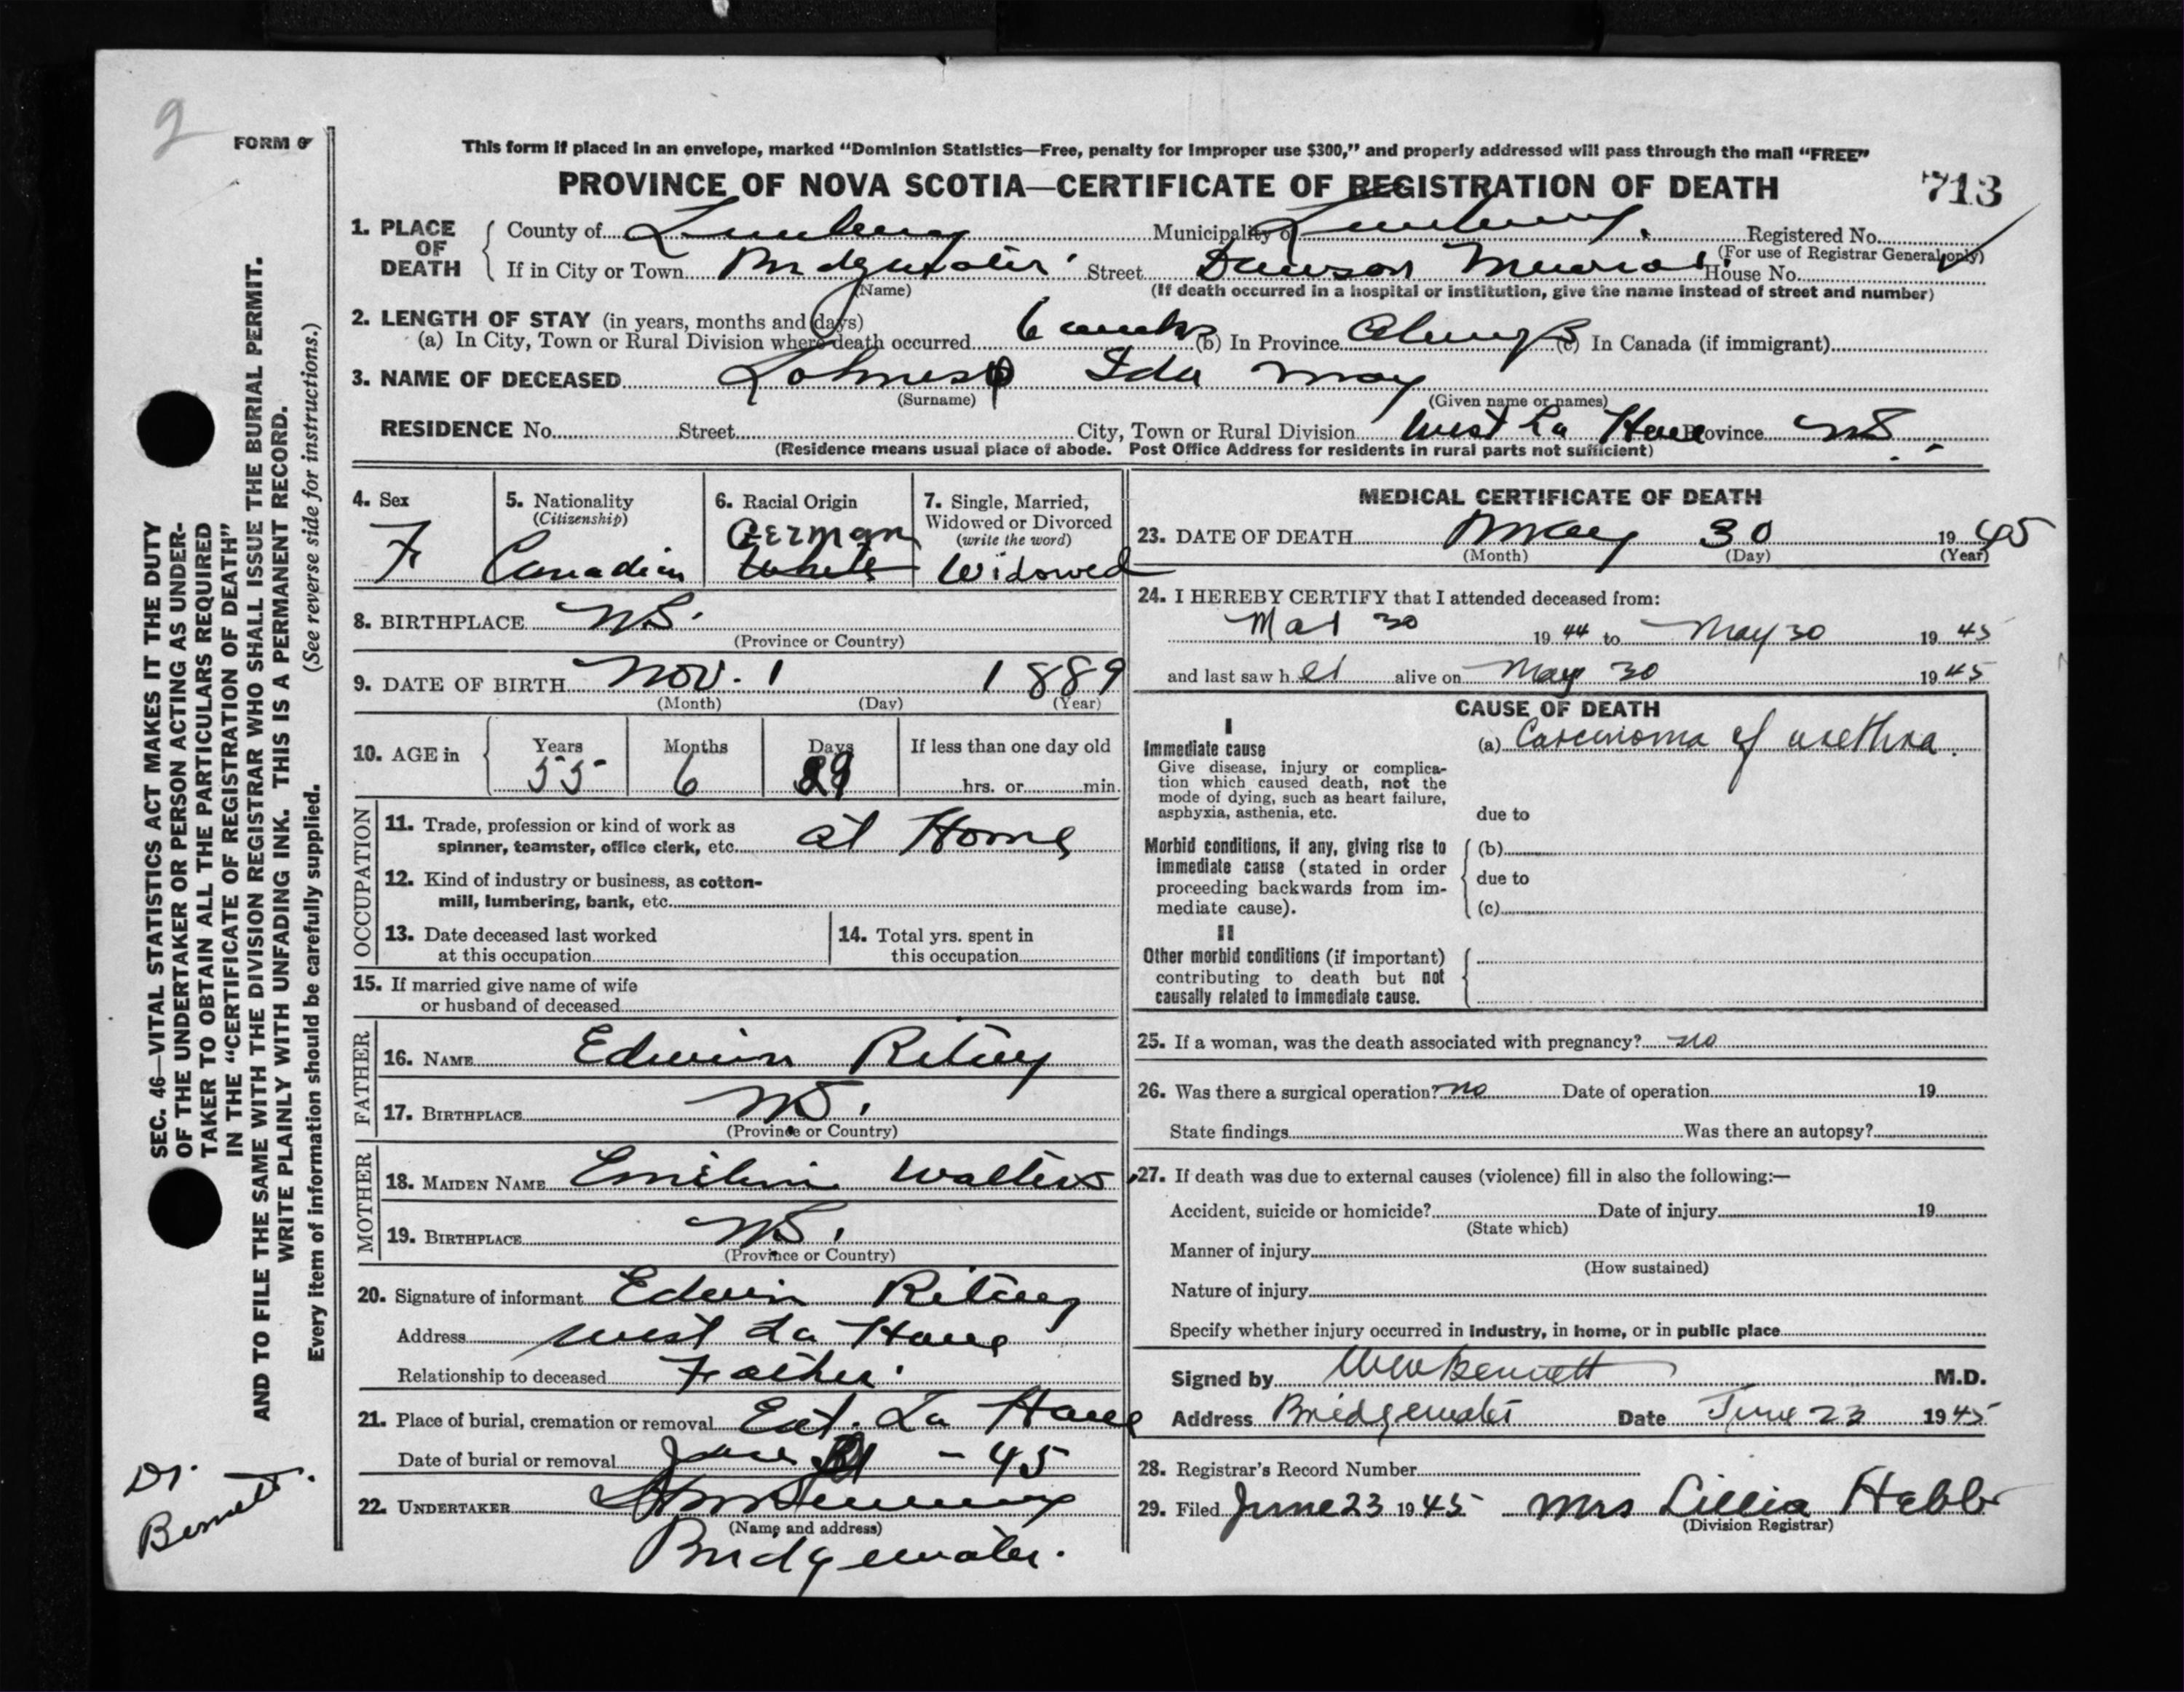 2
FORM 6
This form if placed in an envelope, marked “Dominion Statistics—Free, penalty for improper use $300,” and properly addressed will pass through the mail “FREE”
PROVINCE OF NOVA SCOTIA—CERTIFICATE OF REGISTRATION OF DEATH
713
1. PLACE OF DEATH
County of Lunenburg Municipality of Lunenburg. Registered No.
(For use of Registrar General only)
If in City or Town Bridgewater Street Dawson Memorial House No.
(Name) (If death occurred in a hospital or institution, give the name instead of street and number)
2. LENGTH OF STAY (in years, months and days)
(a) In City, Town or Rural Division where death occurred 6 weeks (b) In Province Always (c) In Canada (if immigrant)
3. NAME OF DECEASED Lohnes Ida May
(Surname) (Given name or names)
RESIDENCE No. Street City, Town or Rural Division West La Have Province N.S.
(Residence means usual place of abode. Post Office Address for residents in rural parts not sufficient)
4. Sex
F
5. Nationality
(Citizenship)
Canadian
6. Racial Origin
German
White
7. Single, Married,
Widowed or Divorced
(write the word)
Widowed
8. BIRTHPLACE N.S.
(Province or Country)
9. DATE OF BIRTH Nov. 1 1889
(Month) (Day) (Year)
10. AGE in
Years Months Days If less than one day old
55 6 29 hrs. or min.
OCCUPATION
11. Trade, profession or kind of work as
spinner, teamster, office clerk, etc. at Home
12. Kind of industry or business, as cotton-
mill, lumbering, bank, etc.
13. Date deceased last worked
at this occupation
14. Total yrs. spent in
this occupation
15. If married give name of wife
or husband of deceased
FATHER
16. NAME Edwin Ritcey
17. BIRTHPLACE N.S.
(Province or Country)
MOTHER
18. MAIDEN NAME Walters
19. BIRTHPLACE N.S.
(Province or Country)
20. Signature of informant Edwin Ritcey
Address West La Have
Relationship to deceased Father
21. Place of burial, cremation or removal La Have
Date of burial or removal - 45
22. UNDERTAKER
(Name and address)
Bridgewater.
MEDICAL CERTIFICATE OF DEATH
23. DATE OF DEATH May 30 1945
(Month) (Day) (Year)
24. I HEREBY CERTIFY that I attended deceased from:
Mar 30 1944 to May 30 1945
and last saw her alive on May 30 1945
CAUSE OF DEATH
I
Immediate cause
Give disease, injury or complica-
tion which caused death, not the
mode of dying, such as heart failure,
asphyxia, asthenia, etc.
(a) Carcinoma of urethra.
due to
Morbid conditions, if any, giving rise to
immediate cause (stated in order
proceeding backwards from im-
mediate cause).
(b)
due to
(c)
II
Other morbid conditions (if important)
contributing to death but not
causally related to immediate cause.
25. If a woman, was the death associated with pregnancy? no
26. Was there a surgical operation? no Date of operation 19
State findings Was there an autopsy?
27. If death was due to external causes (violence) fill in also the following:—
Accident, suicide or homicide? Date of injury 19
(State which)
Manner of injury
(How sustained)
Nature of injury
Specify whether injury occurred in industry, in home, or in public place
Signed by Bennett M.D.
Address Bridgewater Date June 23 1945
28. Registrar's Record Number
29. Filed June 23 1945 Mrs Lillia Hebb
(Division Registrar)
SEC. 46—VITAL STATISTICS ACT MAKES IT THE DUTY
OF THE UNDERTAKER OR PERSON ACTING AS UNDER-
TAKER TO OBTAIN ALL THE PARTICULARS REQUIRED
IN THE “CERTIFICATE OF REGISTRATION OF DEATH”
AND TO FILE THE SAME WITH THE DIVISION REGISTRAR WHO SHALL ISSUE THE BURIAL PERMIT.
WRITE PLAINLY WITH UNFADING INK. THIS IS A PERMANENT RECORD.
Every item of information should be carefully supplied. (See reverse side for instructions.)
Dr.
Bennett.